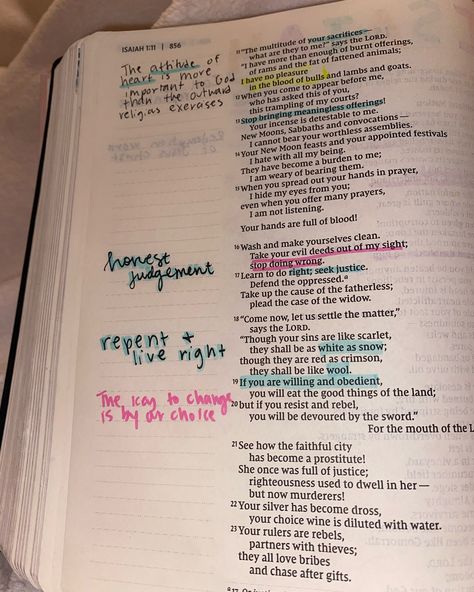 ISAIAH 1:11 | 856
The attitude of
heart is more
important to God
than the outward
religias exercises
honest
judgement
repent +
live right
The key to change
is by ar choice
11 "The multitude of your sacrifices—
what are they to me?" says the LORD.
"I have more than enough of burnt offerings,
of rams and the fat of fattened animals;
I have no pleasure
in the blood of bulls and lambs and goats.
12 When you come to appear before me,
who has asked this of you,
this trampling of my courts?
13 Stop bringing meaningless offerings!
Your incense is detestable to me.
New Moons, Sabbaths and convocations—
I cannot bear your worthless assemblies.
14 Your New Moon feasts and your appointed festivals
I hate with all my being.
They have become a burden to me;
I am weary of bearing them.
15 When you spread out your hands in prayer,
I hide my eyes from you;
even when you offer many prayers,
I am not listening.
Your hands are full of blood!
16 Wash and make yourselves clean.
Take your evil deeds out of my sight;
stop doing wrong.
17 Learn to do right; seek justice.
Defend the oppressed.a
Take up the cause of the fatherless;
plead the case of the widow.
18 "Come now, let us settle the matter,"
says the LORD.
"Though your sins are like scarlet,
they shall be as white as snow;
though they are red as crimson,
they shall be like wool.
19 If you are willing and obedient,
you will eat the good things of the land;
20 but if you resist and rebel,
you will be devoured by the sword."
For the mouth of the L
21 See how the faithful city
has become a prostitute!
She once was full of justice;
righteousness used to dwell in her—
but now murderers!
22 Your silver has become dross,
your choice wine is diluted with water.
23 Your rulers are rebels,
partners with thieves;
they all love bribes
and chase after gifts.